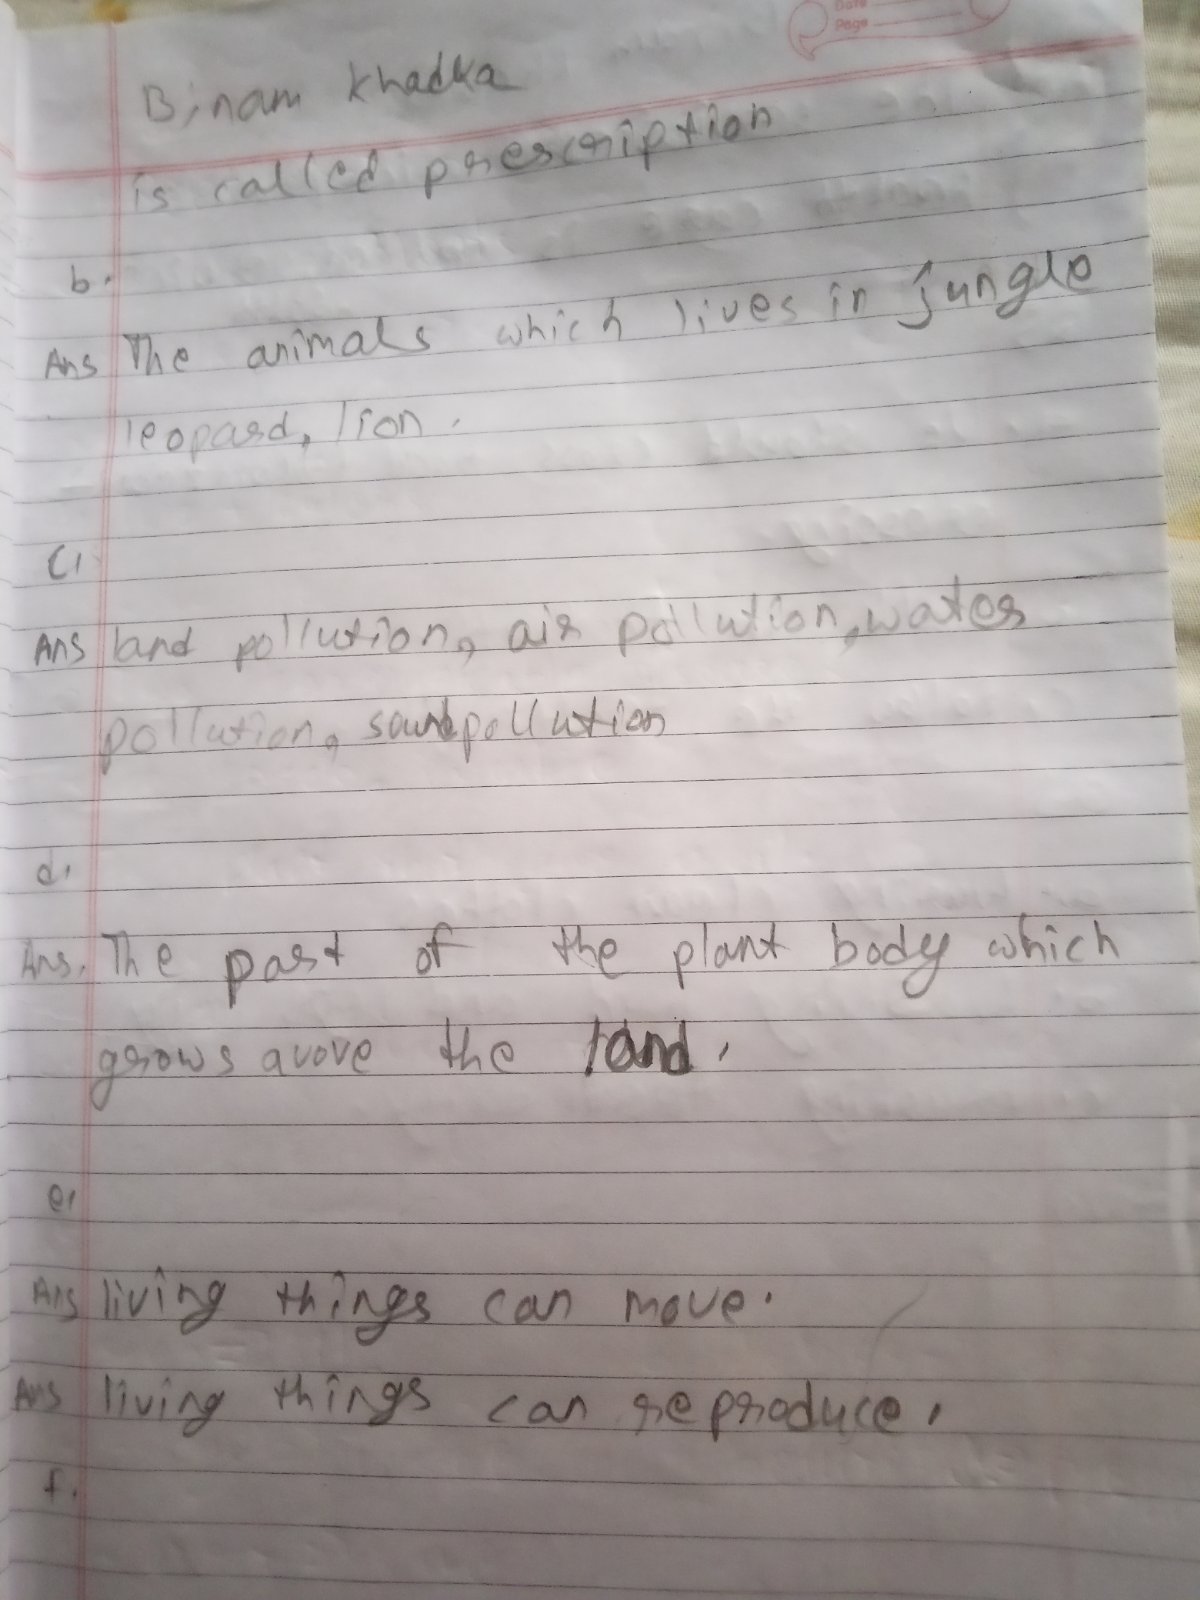 Date
Page
Binam Khadka
is called prescription
b.
Ans The animals which lives in jungle
leopard, lion.
C.
Ans land pollution, air pollution, water
pollution, sound pollution
d.
Ans. The part of the plant body which
grows avove the land.
e.
Ans living things can move.
Ans living things can reproduce.
f.